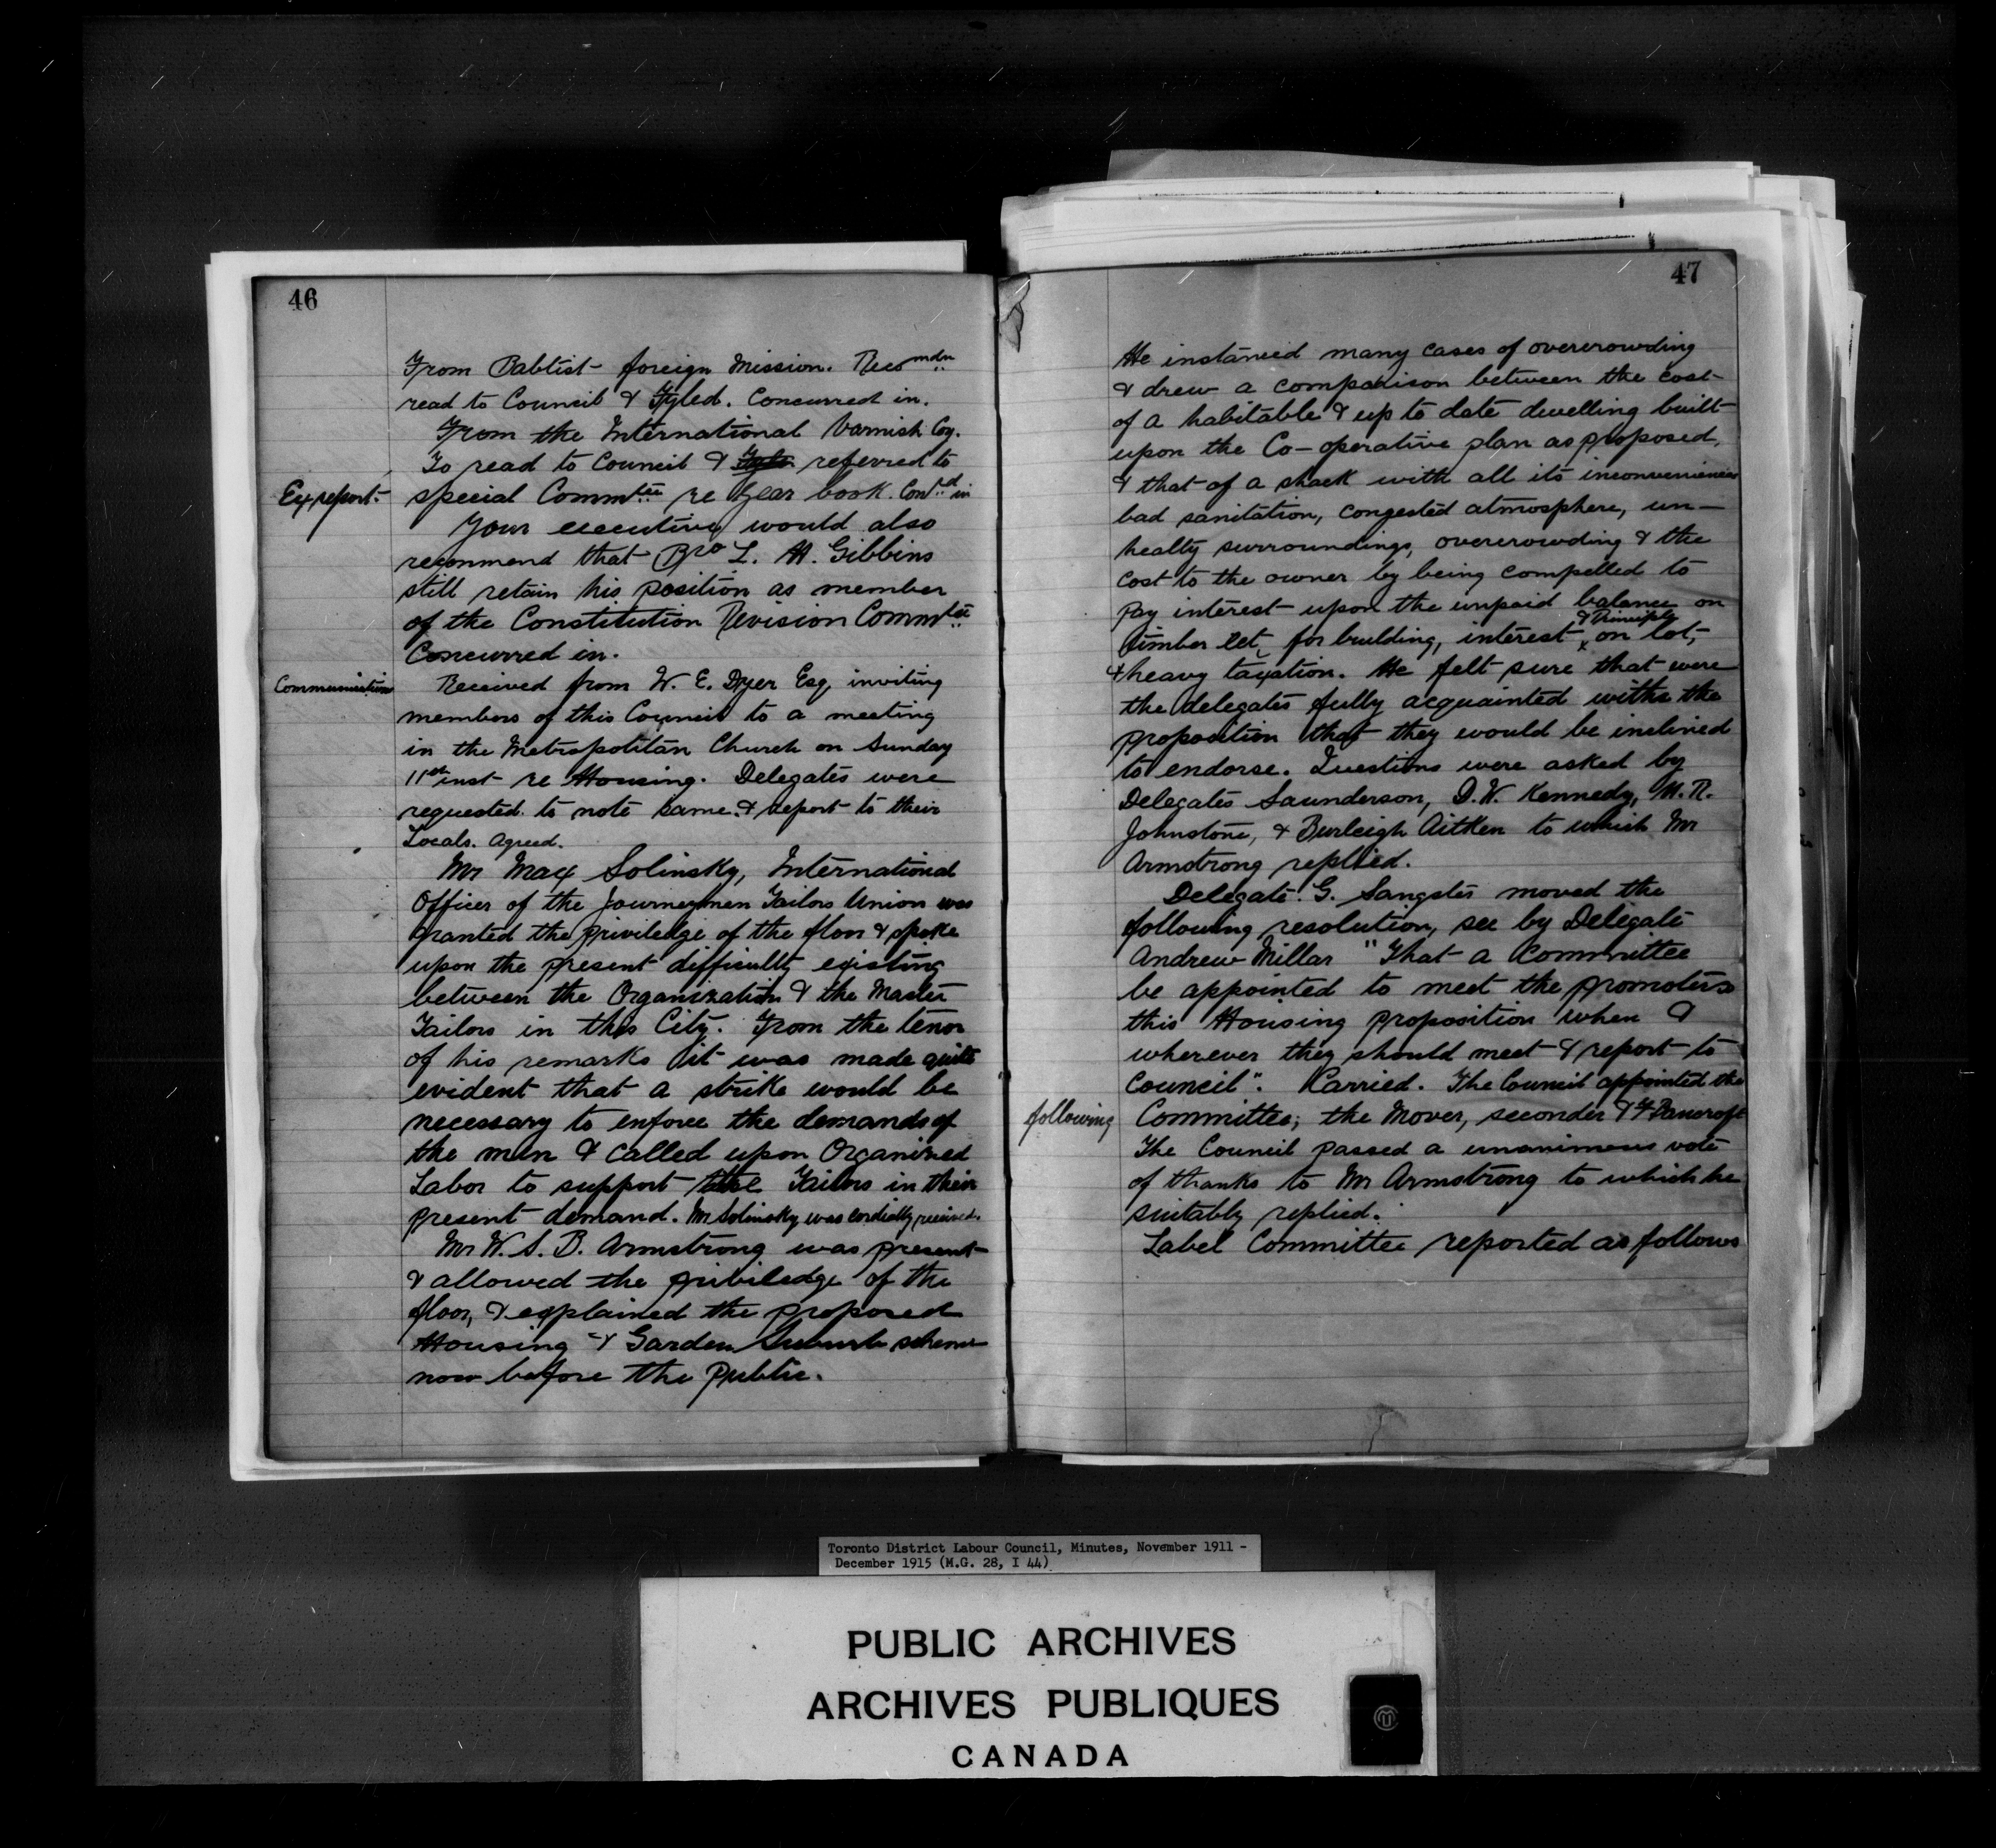 46
From Babtist foreign Mission. Recomdn
read to Council & Fyled. Concurred in.
From the International Varnish Coy.
To read to Council & Fyle referred to
Ex report. special Commtee re Year book. Con'd in
Your executive would also
recommend that Bro L. H. Gibbins
still retain his position as member
of the Constitution Revision Commtee
Concurred in.
Communication Received from W. E. Dyer Esq, inviting
members of this Council to a meeting
in the Metropolitan Church on Sunday
11st inst re Housing. Delegates were
requested to note same & report to their
Locals. Agreed.
Mr Max Solinsky, International
Officer of the Journeymen Tailors Union was
granted the priviledge of the floor & spoke
upon the present difficulty existing
between the Organization & the Master
Tailors in this City. From the tenor
of his remarks it was made quite
evident that a strike would be
necessary to enforce the demands of
the men & called upon Organized
Labor to support the Tailors in their
present demand. Mr Solinsky was cordially received.
Mr W. S. B. Armstrong was present
& allowed the priviledge of the
floor, & explained the proposed
Housing & Garden Suburb scheme
now before the public.
47
He instanced many cases of overcrowding
& drew a comparison between the cost
of a habitable & up to date dwelling built
upon the Co-operative plan as proposed,
& that of a shack with all its inconveniences
bad sanitation, congested atmosphere, un-
healty surroundings, overcrowding & the
cost to the owner by being compelled to
pay interest upon the unpaid balance on
timber let for building, interest & Principle on lot,
& heavy taxation. He felt sure that were
the delegates fully acquainted with the
proposition that they would be inclined
to endorse. Questions were asked by
Delegates Saunderson, D. W. Kennedy, M. R.
Johnstone, & Burleigh Aitken to which Mr
Armstrong replied.
Delegate G. Sangster moved the
following resolution, sec by Delegate
Andrew Millar "That a Committee
be appointed to meet the promoters
this Housing proposition when &
wherever they should meet & report to
Council". Carried. The Council appointed the
following Committee; the Mover, seconder & F Bancroft
The Council passed a unanimous vote
of thanks to Mr Armstrong to which he
suitably replied.
Label Committee reported as follows
Toronto District Labour Council, Minutes, November 1911 -
December 1915 (M.G. 28, I 44)
PUBLIC ARCHIVES
ARCHIVES PUBLIQUES
CANADA